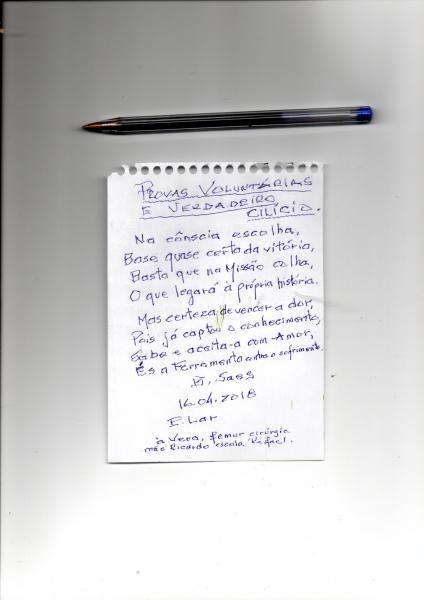 PROVAS VOLUNTÁRIAS
E VERDADEIRO
CILÍCIO.
Na cônscia escolha,
Base quase certa da vitória,
Basta que na Missão colha,
O que legará à própria história.
Mas certeza de vencer a dor,
Pois já captou o conhecimento,
Sabe e aceita-a com Amor,
És a Ferramenta contra o sofrimento.
Sass
16.04.2018
E. Lar
à Vera, femur cirúrgia
mãe Ricardo escola Rafael.